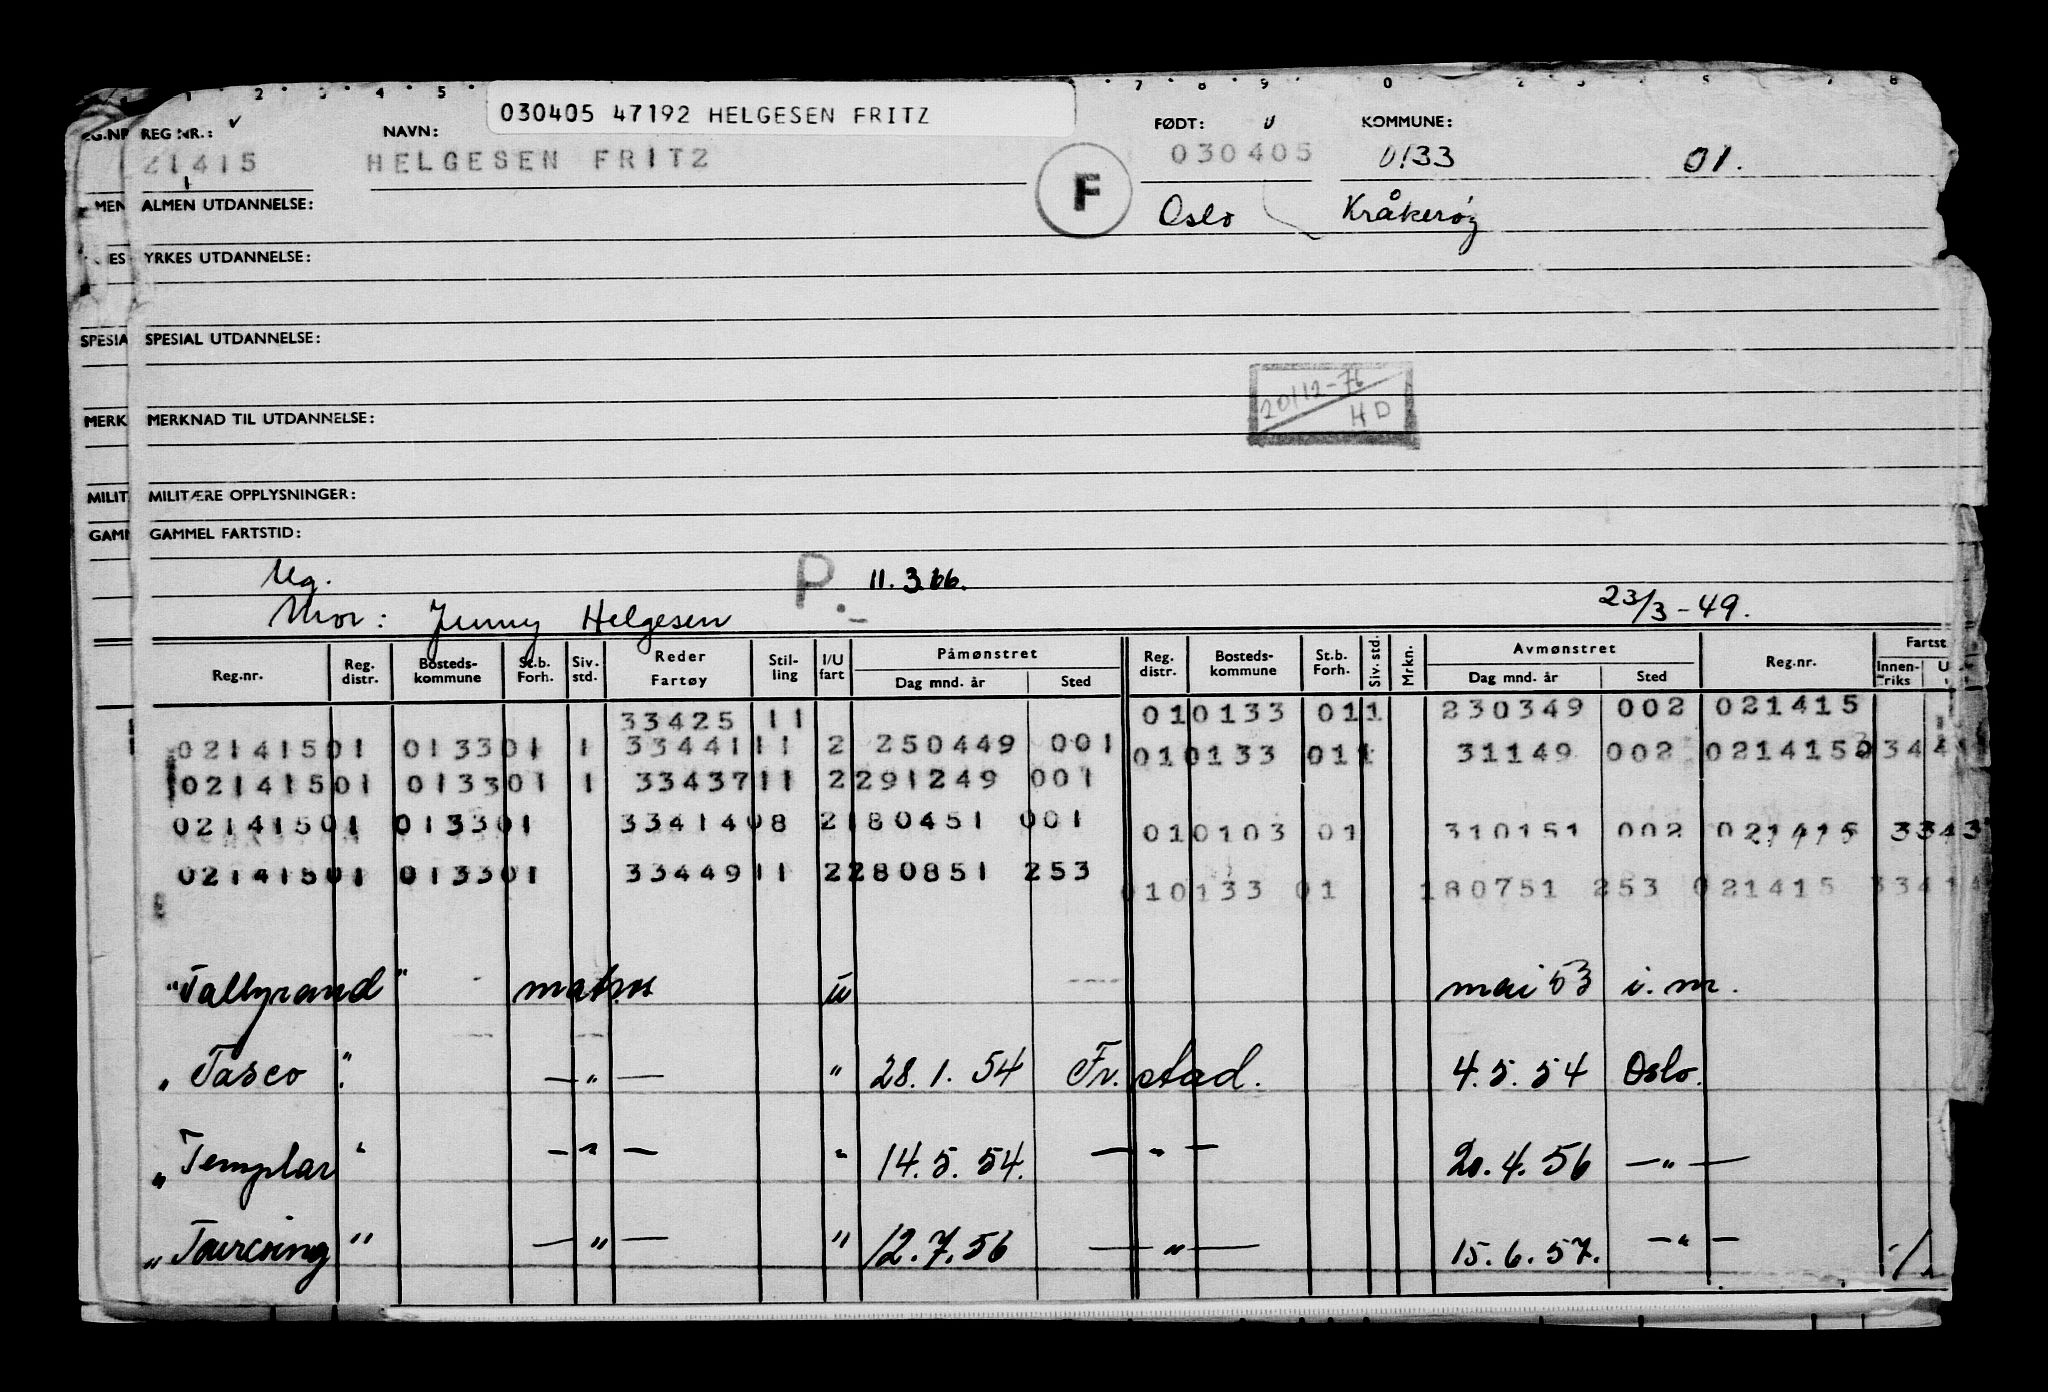 1 2 3 4 5 7 8 9 0 2 3 5 7 8
030405 47192 HELGESEN FRITZ
REG NR.: NAVN: FØDT: KOMMUNE:
21415 HELGESEN FRITZ 030405 0133 01.
F
ALMEN UTDANNELSE: Oslo Kråkerøy
YRKES UTDANNELSE:
SPESIA SPESIAL UTDANNELSE:
20/12-76
HD
MERK MERKNAD TIL UTDANNELSE:
MILIT MILITÆRE OPPLYSNINGER:
GAMM GAMMEL FARTSTID:
Ug. P. 11.3.66.
Mor: Jenny Helgesen 23/3-49.
Reg.nr. Reg. distr. Bosteds-kommune St.b. Forh. Siv. std. Reder Fartøy Stil-ling I/U fart Påmønstret Dag mnd. år Sted Reg. distr. Bosteds-kommune St.b. Forh. Siv. std. Mrkn. Avmønstret Dag mnd. år Sted Reg.nr. Fartst Innen-riks U
33425 11 010133 011 230349 002 021415
02141501 013301 1 33441 11 2 250449 001 010133 011 31149 002 021415 0344
02141501 013301 1 33437 11 2 291249 001
02141501 013301 33414 08 2 180451 001 010103 01 310151 002 021415 3343
02141501 013301 33449 11 2 280851 253
010133 01 180751 253 021415 33414
"Tallyrand" matros u mai 53 i.m.
"Tasco" —"— " 28.1.54 Fr.stad. 4.5.54 Oslo.
"Templar" —"— " 14.5.54. —"— 20.4.56 —"—
"Tourcoing" —"— " 12.7.56 —"— 15.6.57. —"—